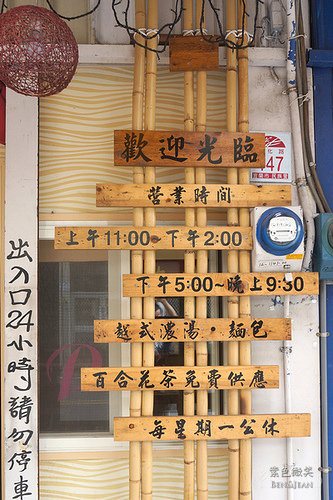 歡迎光臨
營業時間
上午11:00~下午2:00
下午5:00~晚上9:30
越式濃湯·麵包
百合花茶免費供應
每星期一公休
出入口24小時請勿停車
47
紫色微笑
BENGJEAN